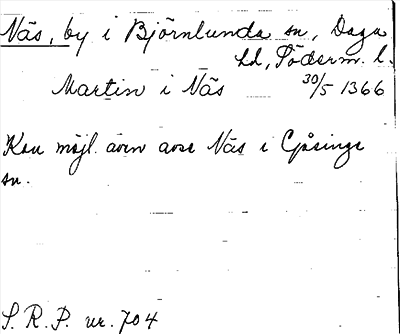 Näs, by i Björnlunda sn, Daga
hd, Söderm. l.
Martin i Näs 30/5 1366
Kan möjl. även avse Näs i Gåsinge
sn.
S. R. P. nr. 704